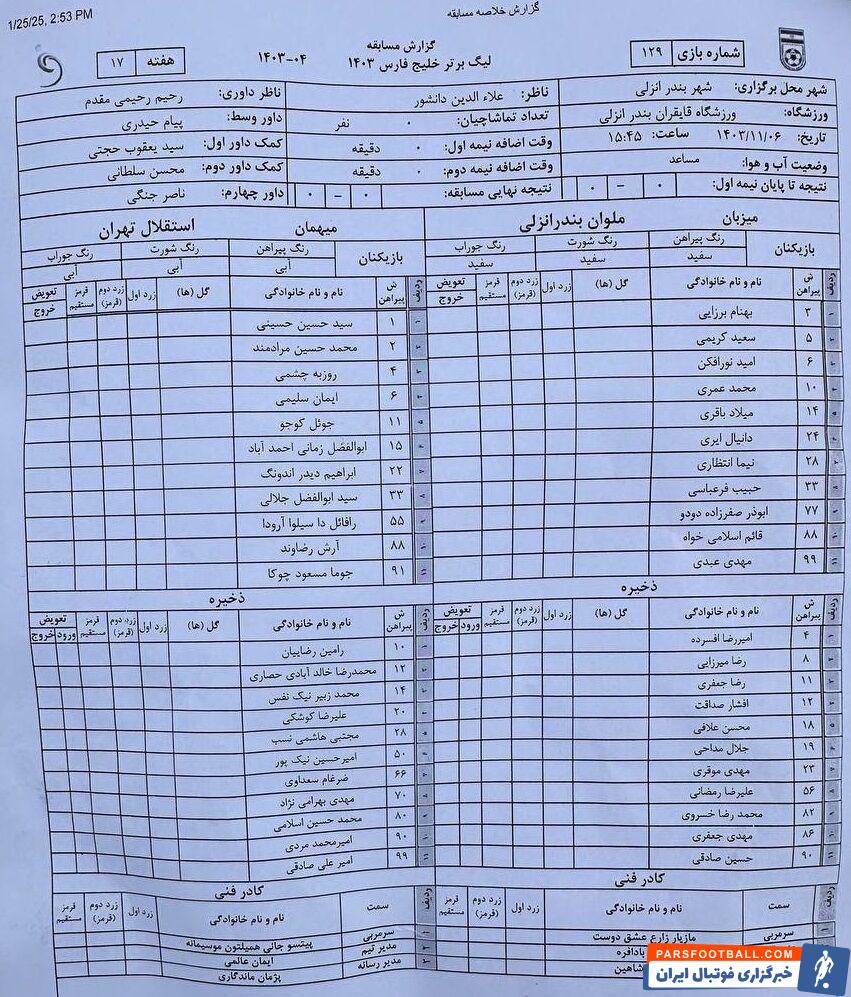 1/25/25, 2:53 PM
گزارش خلاصه مسابقه
گزارش مسابقه
شماره بازی ۱۲۹
لیگ برتر خلیج فارس ۱۴۰۳
۱۴۰۳-۰۴
هفته ۱۷
شهر محل برگزاری: شهر بندر انزلی
ورزشگاه: ورزشگاه قایقران بندر انزلی
تاریخ: ۱۴۰۳/۱۱/۰۶ ساعت: ۱۵:۴۵
وضعیت آب و هوا: مساعد
نتیجه تا پایان نیمه اول: ۰ – ۰
ناظر: علاء الدین دانشور
تعداد تماشاچیان: ۰ نفر
وقت اضافه نیمه اول: ۰ دقیقه
وقت اضافه نیمه دوم: ۰ دقیقه
نتیجه نهایی مسابقه: ۰ – ۰
ناظر داوری: رحیم رحیمی مقدم
داور وسط: پیام حیدری
کمک داور اول: سید یعقوب حجتی
کمک داور دوم: محسن سلطانی
داور چهارم: ناصر جنگی
میزبان ملوان بندرانزلی
بازیکنان رنگ پیراهن رنگ شورت رنگ جوراب
سفید سفید سفید
ردیف ش پیراهن نام و نام خانوادگی گل (ها) زرد اول زرد دوم (قرمز) قرمز مستقیم تعویض خروج
۱ ۳ بهنام برزایی
۲ ۵ سعید کریمی
۳ ۶ امید نورافکن
۴ ۱۰ محمد عمری
۵ ۱۴ میلاد باقری
۶ ۲۴ دانیال ایری
۷ ۲۸ نیما انتظاری
۸ ۳۳ حبیب فرعباسی
۹ ۷۷ ابوذر صفرزاده دودو
۱۰ ۸۸ قائم اسلامی خواه
۱۱ ۹۹ مهدی عبدی
ذخیره
ردیف ش پیراهن نام و نام خانوادگی گل (ها) زرد اول زرد دوم (قرمز) قرمز مستقیم تعویض ورود خروج
۱ ۴ امیررضا افسرده
۲ ۸ رضا میرزایی
۳ ۱۱ رضا جعفری
۴ ۱۲ افشار صداقت
۵ ۱۸ محسن علافی
۶ ۱۹ جلال مداحی
۷ ۲۳ مهدی موقری
۸ ۵۶ علیرضا رمضانی
۹ ۸۲ محمد رضا خسروی
۱۰ ۸۶ مهدی جعفری
۱۱ ۹۰ حسین صادقی
کادر فنی
ردیف سمت نام و نام خانوادگی زرد اول زرد دوم (قرمز) قرمز مستقیم
۱ سرمربی مازیار زارع عشق دوست
بادافره
شاهین
میهمان استقلال تهران
بازیکنان رنگ پیراهن رنگ شورت رنگ جوراب
آبی آبی آبی
ردیف ش پیراهن نام و نام خانوادگی گل (ها) زرد اول زرد دوم (قرمز) قرمز مستقیم تعویض خروج
۱ ۱ سید حسین حسینی
۲ ۲ محمد حسین مرادمند
۳ ۴ روزبه چشمی
۴ ۶ ایمان سلیمی
۵ ۱۱ جوئل کوجو
۶ ۱۵ ابوالفضل زمانی احمد آباد
۷ ۲۲ ابراهیم دیدر اندونگ
۸ ۳۳ سید ابوالفضل جلالی
۹ ۵۵ رافائل دا سیلوا آرودا
۱۰ ۸۸ آرش رضاوند
۱۱ ۹۱ جوما مسعود چوکا
ذخیره
ردیف ش پیراهن نام و نام خانوادگی گل (ها) زرد اول زرد دوم (قرمز) قرمز مستقیم تعویض ورود خروج
۱ ۱۰ رامین رضاییان
۲ ۱۲ محمدرضا خالد آبادی حصاری
۳ ۱۴ محمد زبیر نیک نفس
۴ ۲۰ علیرضا کوشکی
۵ ۲۸ مجتبی هاشمی نسب
۶ ۵۰ امیرحسین نیک پور
۷ ۶۶ ضرغام سعداوی
۸ ۷۰ مهدی بهرامی نژاد
۹ ۸۰ محمد حسین اسلامی
۱۰ ۹۰ امیرمحمد مردی
۱۱ ۹۹ امیر علی صادقی
کادر فنی
ردیف سمت نام و نام خانوادگی زرد اول زرد دوم (قرمز) قرمز مستقیم
۱ سرمربی پیتسو جانی همیلتون موسیمانه
۲ مدیر تیم ایمان عالمی
۳ مدیر رسانه پژمان ماندگاری
PARSFOOTBALL.COM
خبرگزاری فوتبال ایران